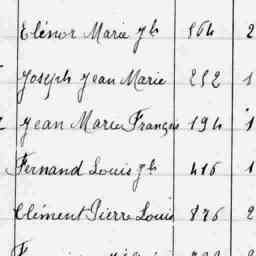 Elénor Marie Jh 864 2
Joseph Jean Marie 252 1
Jean Marie François 194 1
Fernand Louis Jh 416 1
Clément Pierre Louis 876 2